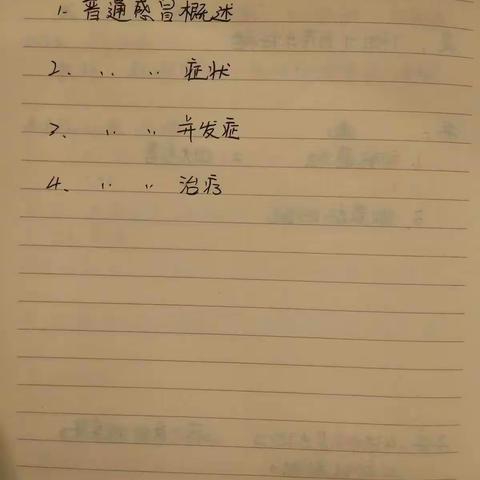 1. 普通感冒概述
2. 〃 〃 症状
3. 〃 〃 并发症
4. 〃 〃 治疗